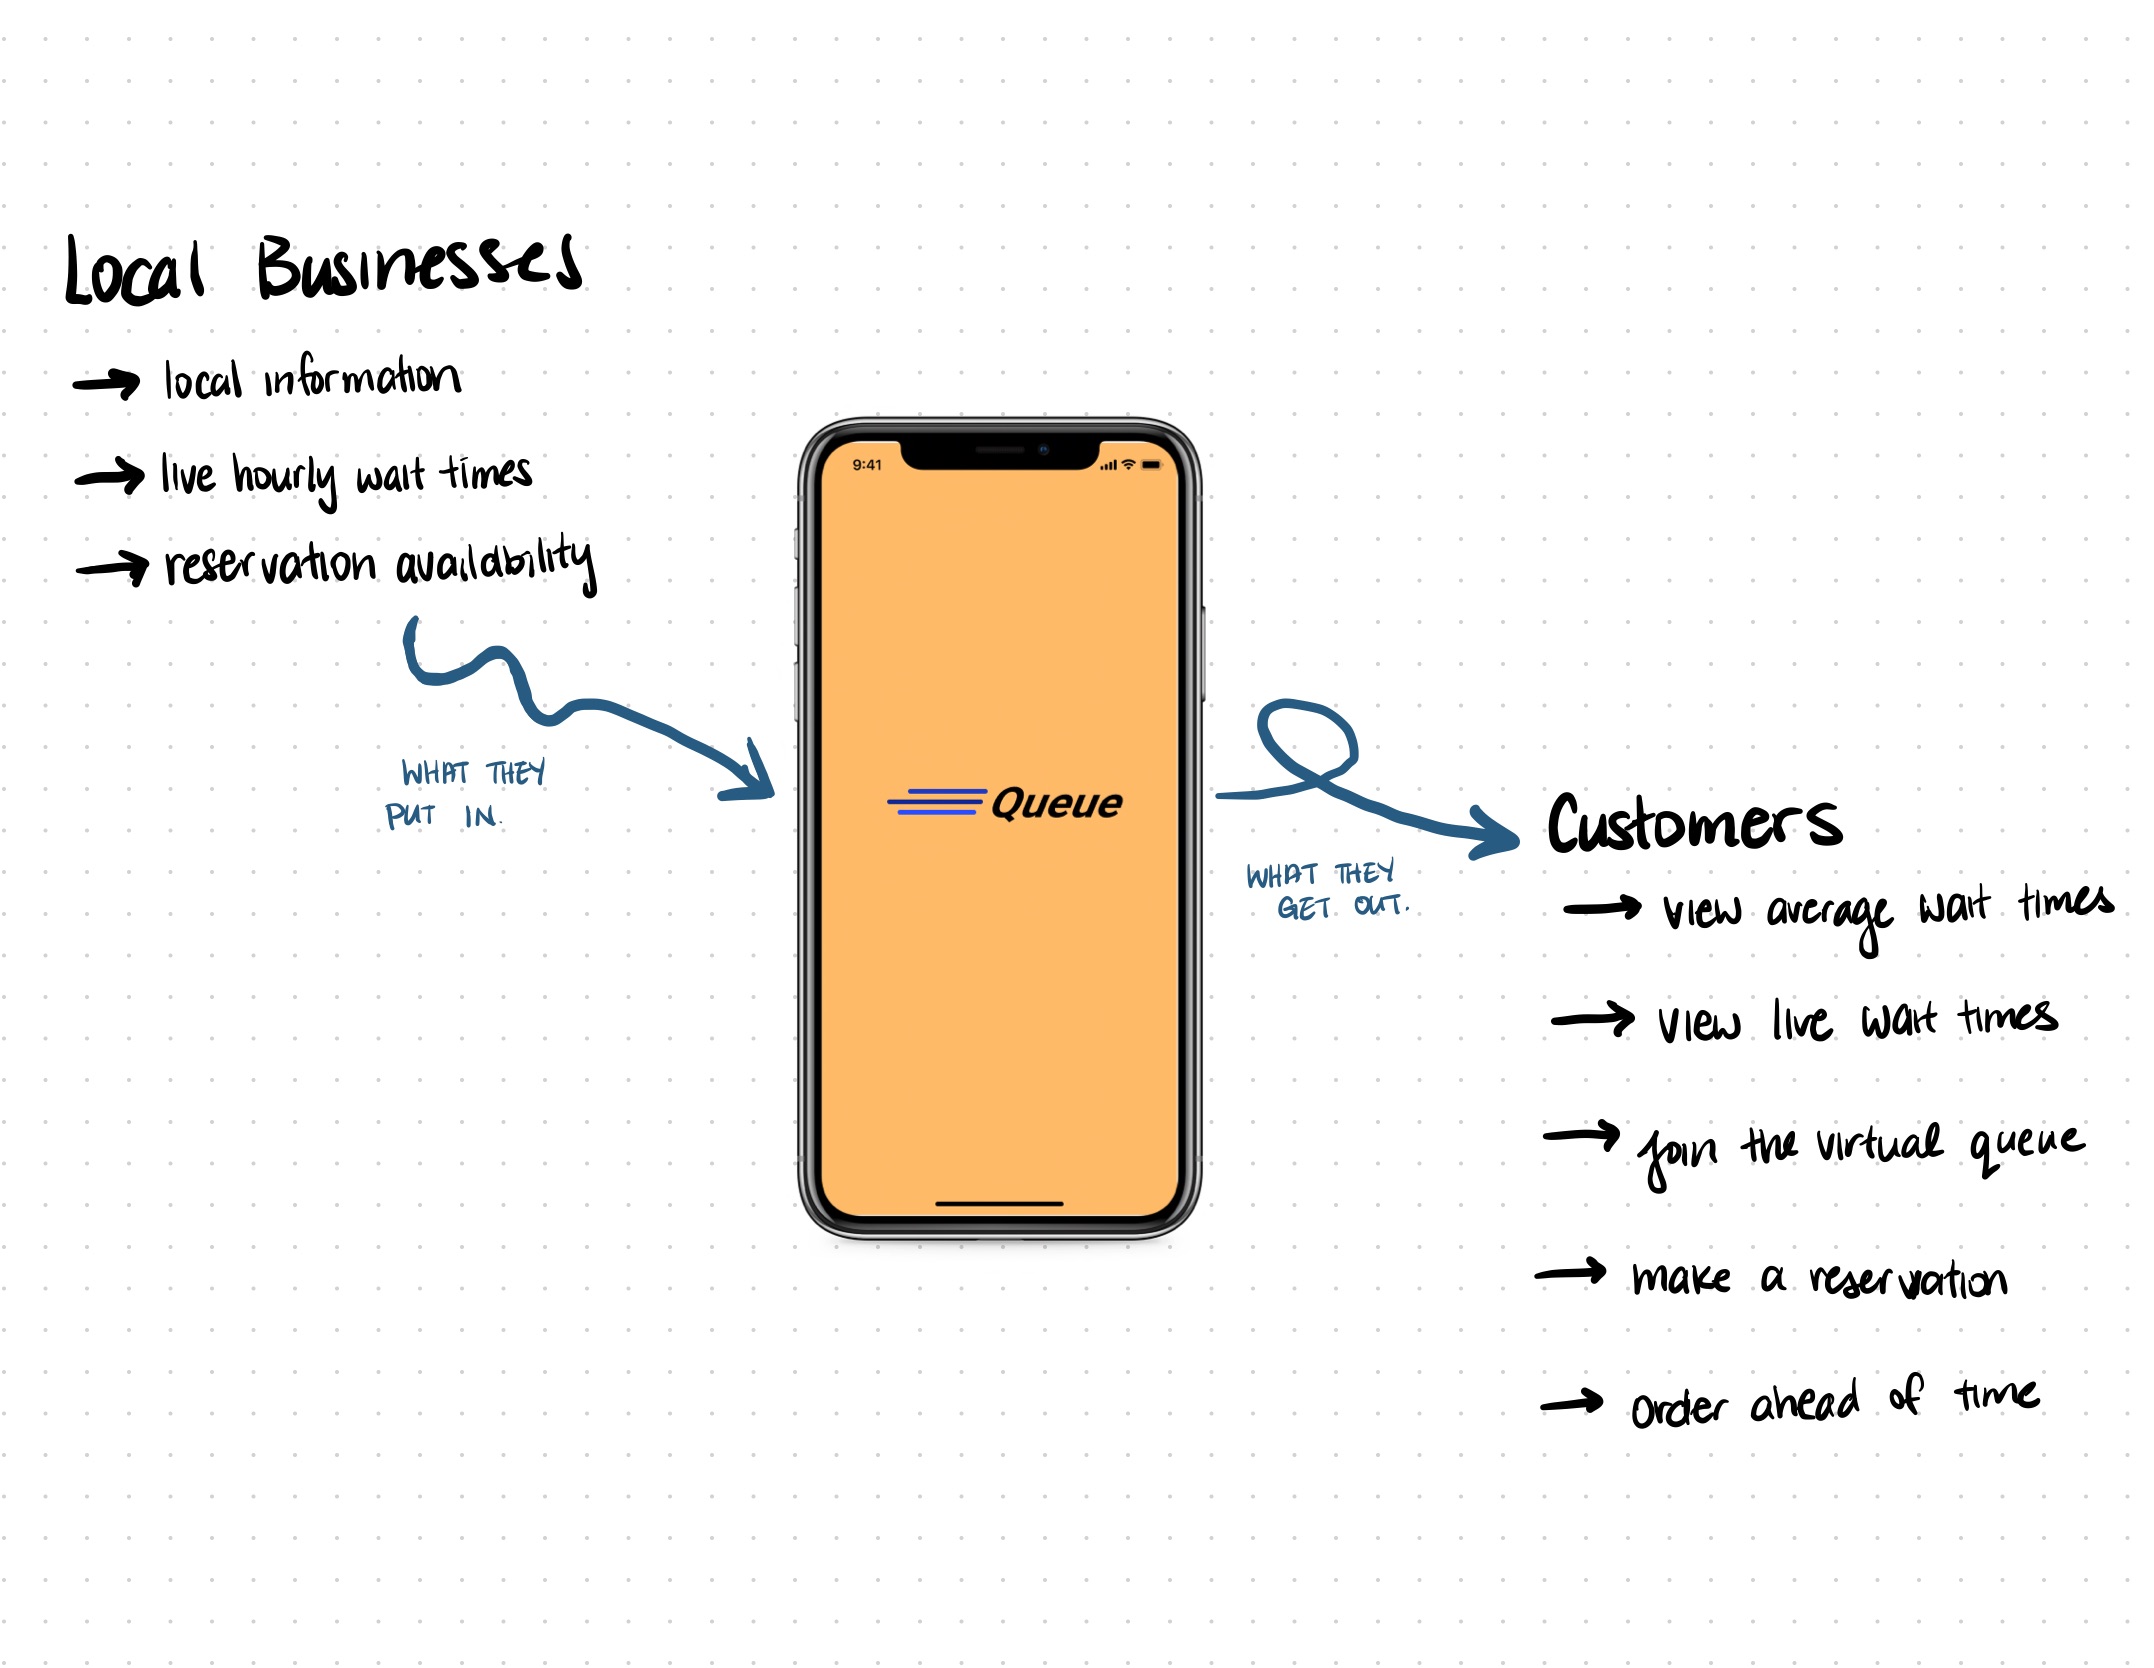 Local Businesses
→ local information
→ live hourly wait times
→ reservation availability
WHAT THEY
PUT IN.
9:41
Queue
WHAT THEY
GET OUT.
Customers
→ view average wait times
→ view live wait times
→ join the virtual queue
→ make a reservation
→ order ahead of time